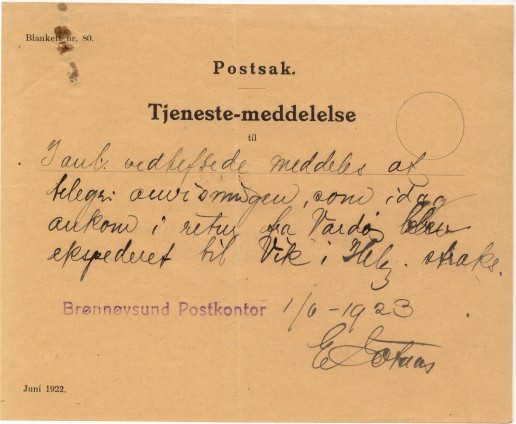 Blankett nr. 80.
Postsak.
Tjeneste-meddelelse
til
I anl. vedheftede meddeles at
telegr. anvisningen, som idag
ankom i retur fra Vardø, blev
ekspederet til Vik i Helg. straks.
Brønnøysund Postkontor 1/6-1923
E
Juni 1922.